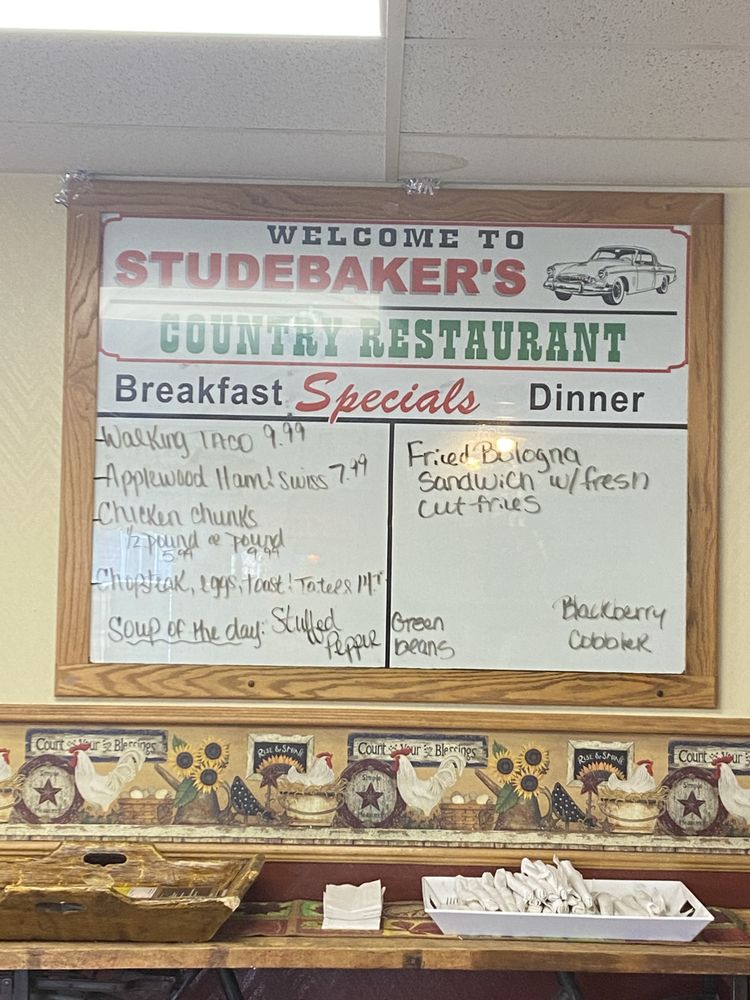 WELCOME TO
STUDEBAKER'S
COUNTRY RESTAURANT
Breakfast Specials Dinner
-Walking Taco 9.99
-Applewood Ham & Swiss 7.99
-Chicken chunks
1/2 pound or pound
5.99 9.99
-Chopsteak, eggs, toast & Taters
Soup of the day: Stuffed
Pepper
Fried Bologna
Sandwich w/fresh
cut fries
Green
beans
Blackberry
Cobbler
Count Your Blessings
Rise & Shine
Simple
Count Your Blessings
Rise & Shine
Simple
Count Your
Simple